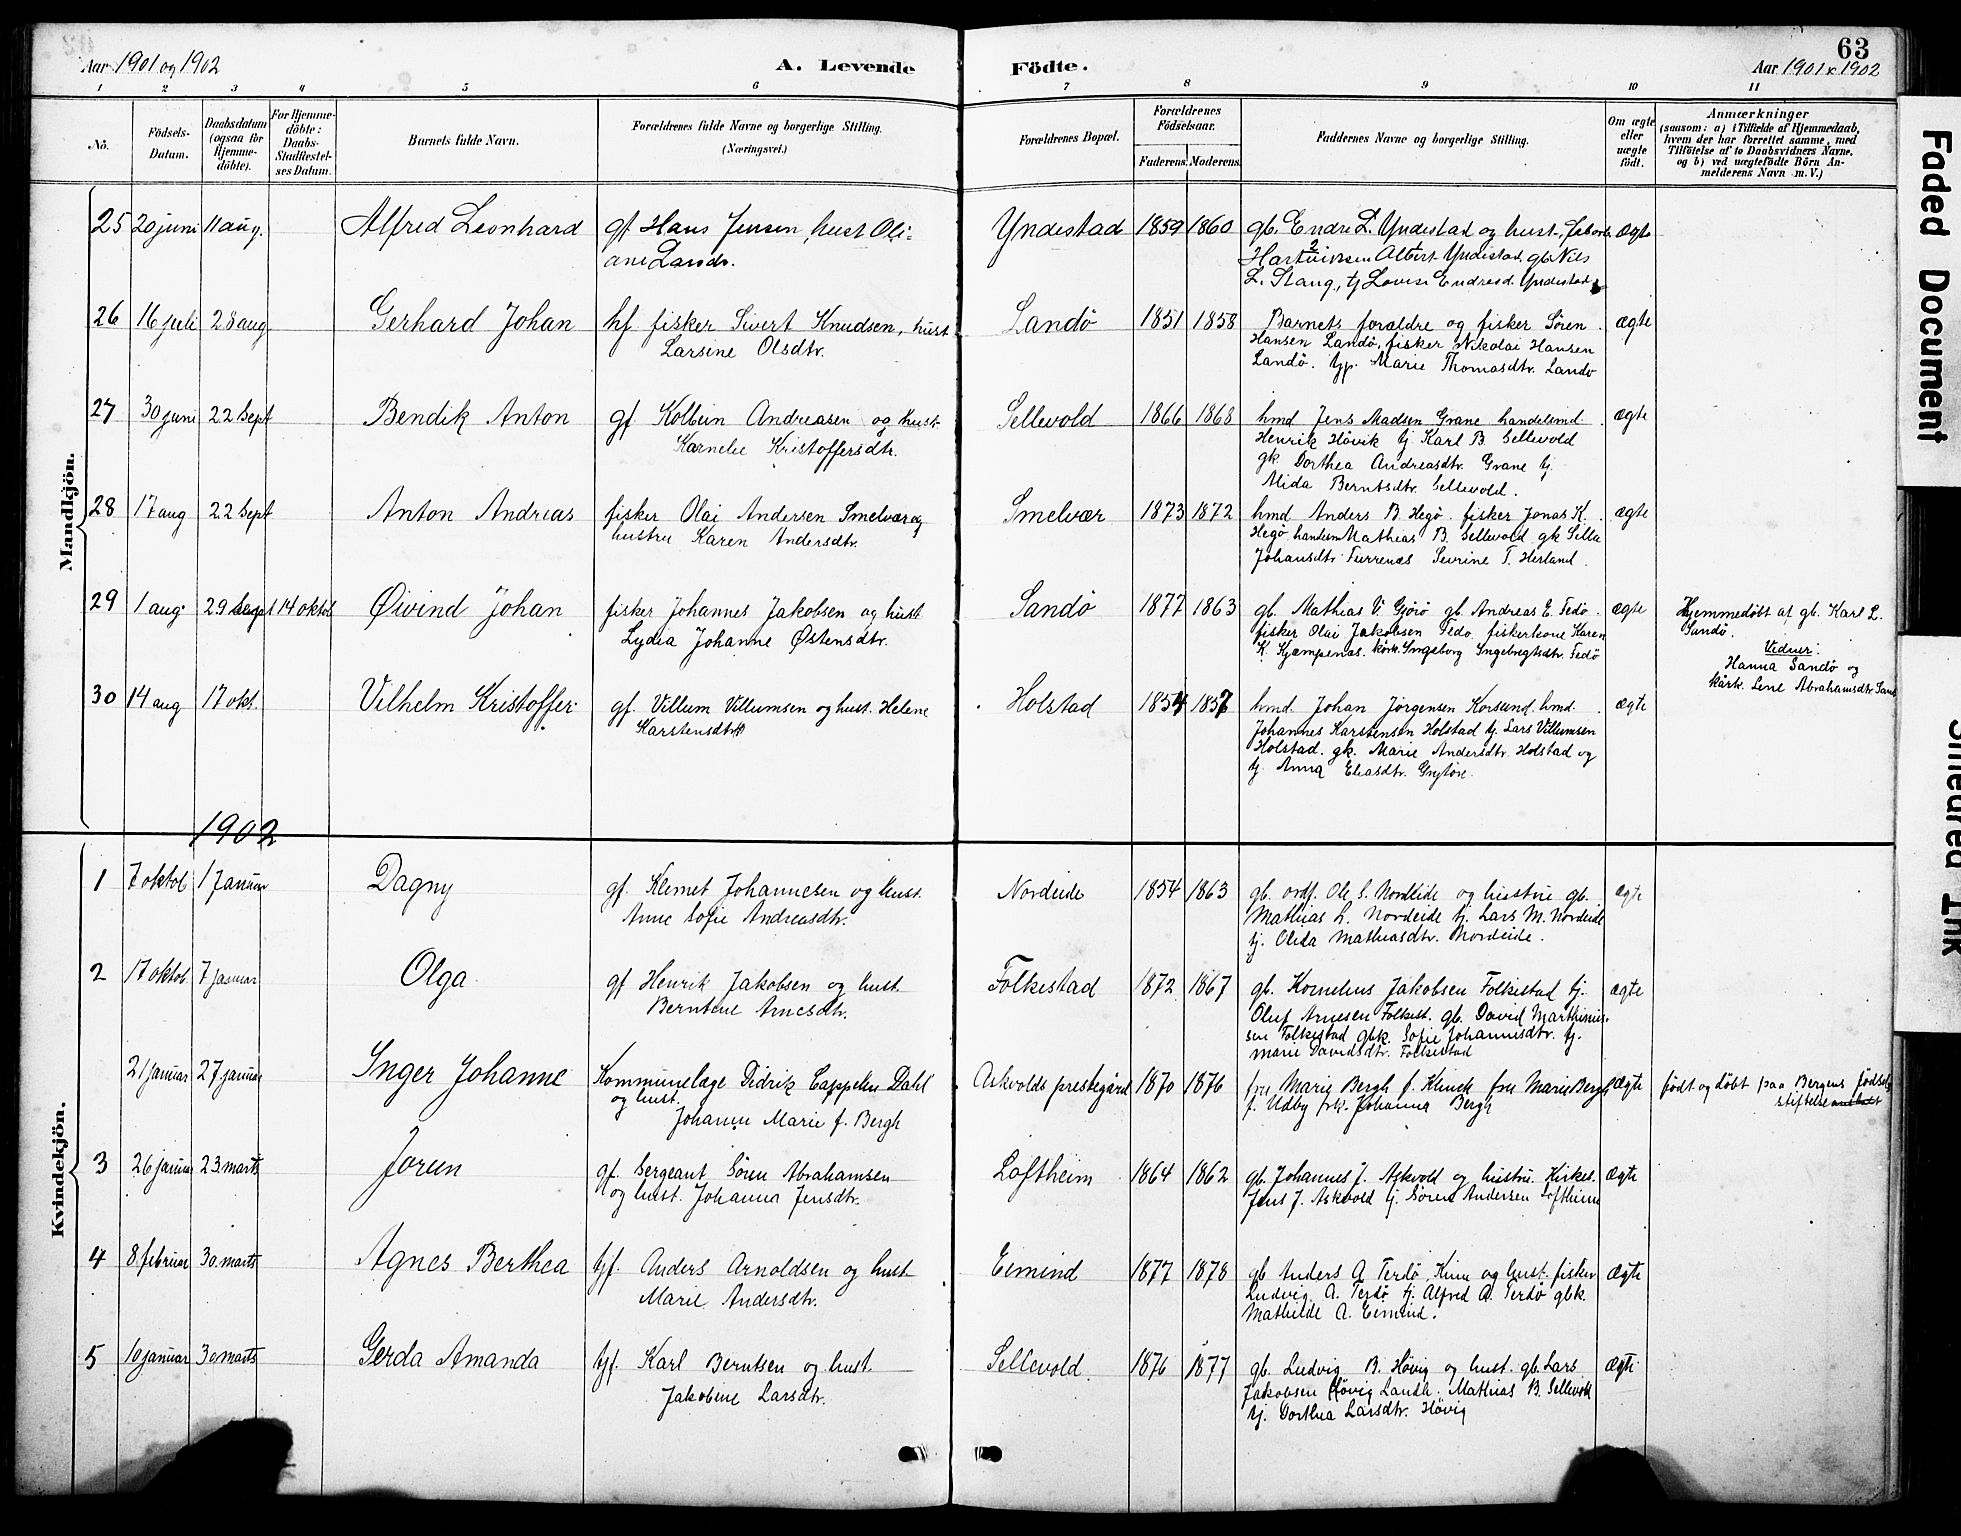 Aar 1901 og 1902
A. Levende
Födte.
63
Aar 1901 & 1902
1 2 3 4 5 6 7 8 9 10 11
No.
Födsels-
Datum.
Daabsdatum
(ogsaa for
Hjemme-
döbte).
For Hjemme-
döbte:
Daabs-
Stadfæstel-
ses Datum.
Barnets fulde Navn.
Forældrenes fulde Navne og borgerlige Stilling.
(Næringsvei.)
Forældrenes Bopæl.
Forældrenes
Födselsaar.
Faderens. Moderens.
Faddernes Navne og borgerlige Stilling.
Om ægte
eller
uægte
födt.
Anmærkninger
(saasom: a) i Tilfælde af Hjemmedaab,
hvem der har forrettet samme, med
Tilföielse af to Daabsvidners Navne,
og b) ved uægtefödte Börn An-
melderens Navn m. V.)
Mandkjön.
25 20 juni 11 aug. Alfred Leonhard gf Hans Jensen, hust Oli-
ane Larsdr.
Yndestad 1859 1860 gb. Endre L. Yndestad og hust.
Albert Yndestad, gb. Nils
L. Stang, tj Lovise Endresd. Yndestad
ægte
26 16 juli 28 aug Gerhard Johan hf fisker Sivert Knudsen, hust
Larsine Olsdtr.
Landö 1851 1858 Barnets forældre og fisker Sören
Hansen Landö, fisker Nikolai Hansen
Landö. tjp. Marie Thomasdtr. Landö
ægte
27 30 juni 22 Sept Bendik Anton gf Kolbein Andreasen og hust
Karnelie Kristoffersdtr.
Sellevold 1866 1868 hmd Jens Madsen Grane handelsmd
Henrik Hövik tj Karl B. Sellevold
gk. Dorthea Andreasdtr. Grane tj.
Alida Berntsdtr. Sellevold.
ægte
28 17 aug 22 Sept Anton Andreas fisker Olai Andersen Smelvær og
hustru Karen Andersdtr.
Smelvær 1873 1872 hmd Anders B. Hegö. fisker Jonas K.
Hegö handelsm Mathias B. Sellevold gk Sella
Johansdtr. Furrenæs Sevrine T. Herland.
ægte
29 1 aug. 29 sept 14 oktob Øivind Johan fisker Johannes Jakobsen og hust
Lydia Johanne Østensdtr.
Sandö 1877 1863 gb. Mathias V. Gjörö gb. Andreas E. Fedö.
fisker Olai Jakobsen Fedo. fiskerkone Karen
K. Kjempenæs. kårk. Ingeborg Ingebrigtsdtr. Fedö
ægte
Hjemmedöbt af gb. Karl L.
Sandö.
Vidner:
Hanna Sandö og
kårk. Lene Abrahamsdtr Sand
30 14 aug 17 okt. Vilhelm Kristoffer gf. Villum Villumsen og hust. Helene
Karstensdtr
Holstad 1854 1857 hmd. Johan Jörgensen Korssund. hmd.
Johannes Karstensen Holstad tj. Lars Villumsen
Holstad. gk. Marie Andersdtr. Holstad og
tj. Anna Eliasdtr. Grytöre.
ægte
1902
Kvindekjön.
1 7 oktob 1 Januar Dagny gf. Klemet Johannesen og hust.
Anne Sofie Andreasdtr.
Nordeide 1854 1863 gb. ordf. Ole S. Nordeide og hustru gb.
Mathias L. Nordeide tj. Lars M. Nordeide
tj. Olida Mathiasdtr. Nordeide.
ægte
2 17 oktob 7 januar Olga gf Henrik Jakobsen og hust.
Berntine Arnesdtr.
Folkestad 1872 1867 gb. Kornelius Jakobsen Folkestad tj.
Oluf Arnesen Folkest. gb. David Marthinus-
sen Folkestad gbk. Sofie Johannisdtr. tj.
Marie Davidsdtr. Folkestad
ægte
21 januar 27 januar Inger Johanne Kommunelæge Didrik Cappelen Dahl
og hust.
Johanne Marie f. Bergh
Askvolds prestegård 1870 1876 fru Marie Bergh f. Klinck fru Marie Bergh
f. Udby frk. Johanna Bergh
ægte
födt og döbt paa Bergens födsels
stiftelse
3 26 januar 23 marts Jorun gf. Sergeant Sören Abrahamsen
og hust. Johanna Jensdtr.
Loftheim 1864 1862 gb. Johannes J. Askvold og hustru. Kirkes.
Jens J. Askvold tj. Sören Andersen Loftheim
ægte
4 8 februar 30 marts Agnes Berthea tjf. Anders Arnoldsen og hust
Marie Andersdtr.
Eimind 1877 1878 gb Anders A. Terdö, Kinn og hust. fisker
Ludvig A. Terdö tj. Alfred A. Terdö gbk.
Mathilde A. Eimind.
ægte
5 10 januar 30 marts Gerda Amanda tjf. Karl Berntsen og hust
Jakobine Larsdtr.
Sellevold. 1876 1877 gb. Ludvig B. Hövig og hust. gb. Lars
Jakobsen Hövig Landh. Mathias B. Sellevold
tj. Dorthea Larsdtr. Hövig
ægte
Faded Document
Smeared Ink